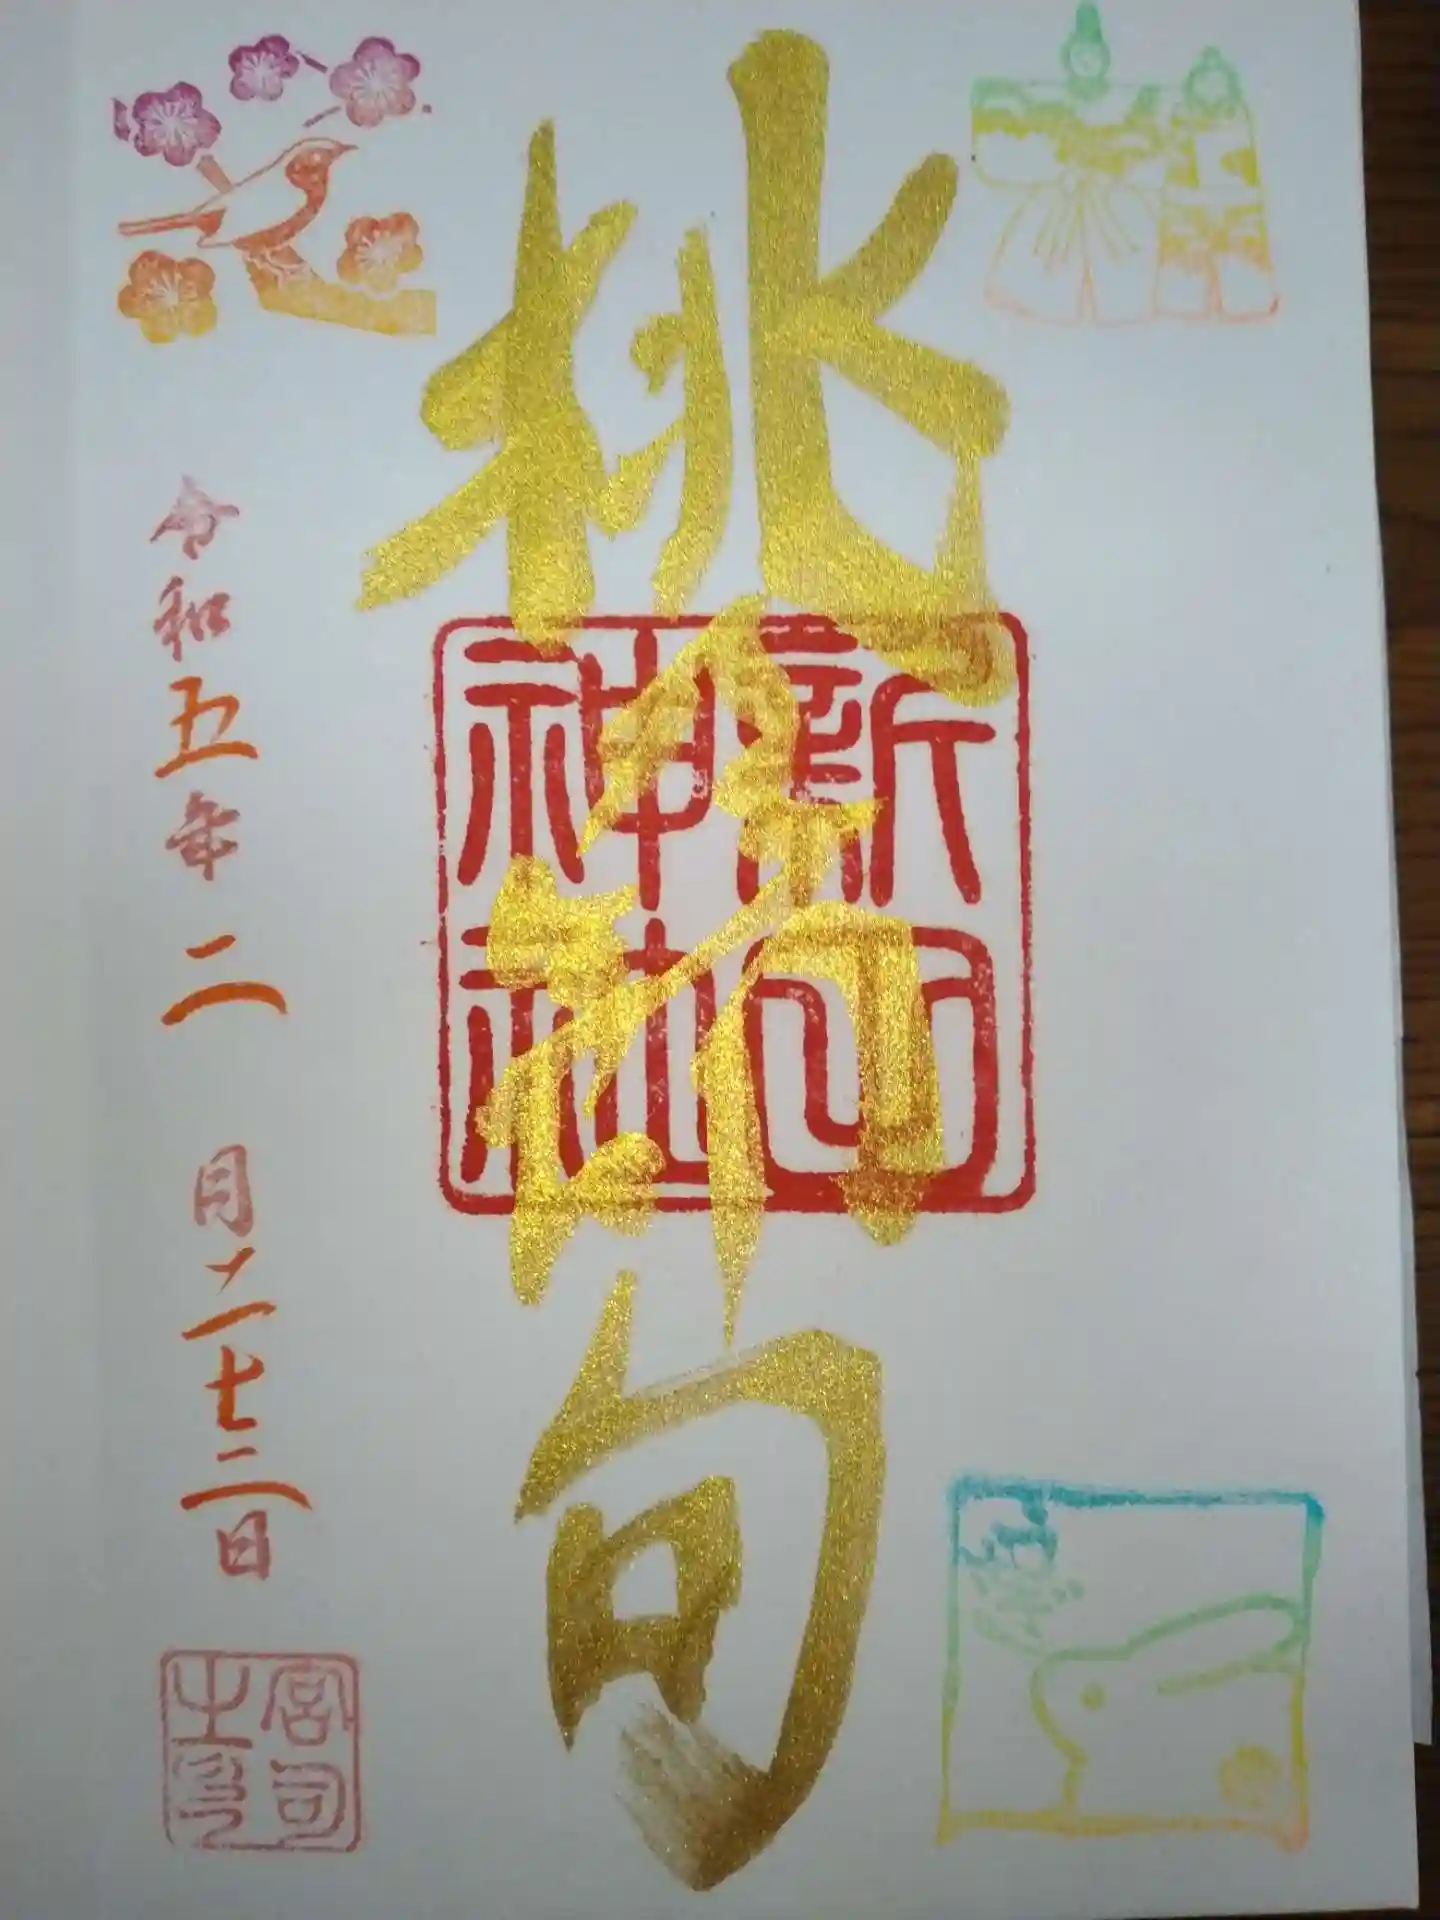 桃乃節句
新
神社
令和五年二月二十二日
宮司
之印